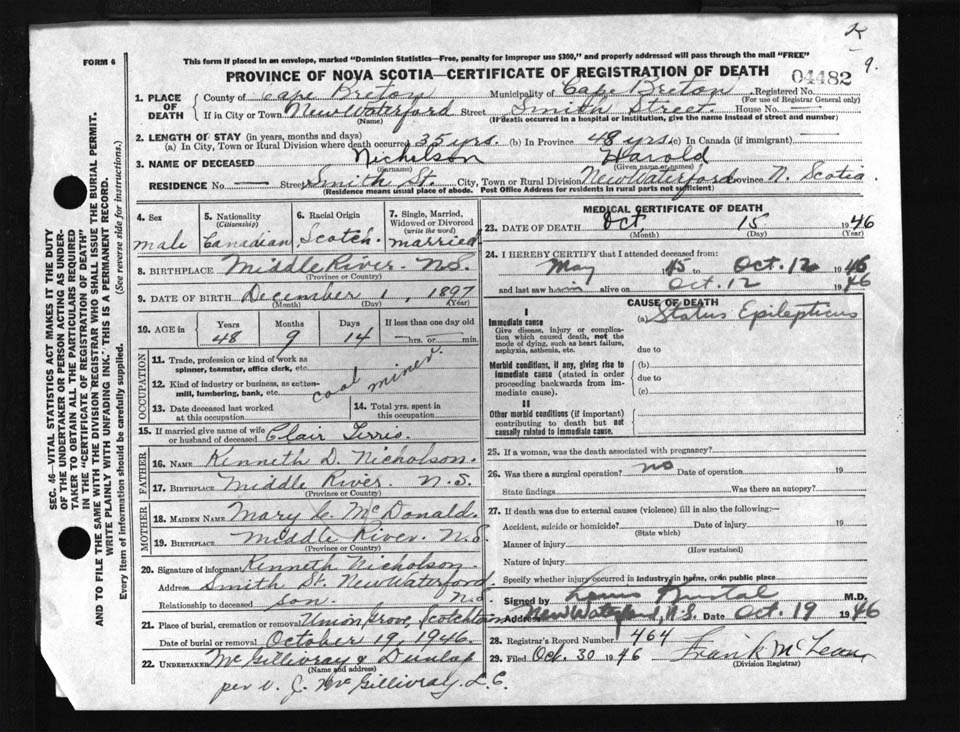 K
9.
FORM 6
This form if placed in an envelope, marked "Dominion Statistics—Free, penalty for improper use $300," and properly addressed will pass through the mail "FREE"
PROVINCE OF NOVA SCOTIA—CERTIFICATE OF REGISTRATION OF DEATH
04482
1. PLACE OF DEATH
County of Cape Breton Municipality of Cape Breton Registered No.
(For use of Registrar General only)
If in City or Town New Waterford Street Smith Street. House No. —
(Name) (If death occurred in a hospital or institution, give the name instead of street and number)
2. LENGTH OF STAY (in years, months and days)
(a) In City, Town or Rural Division where death occurred 35 yrs. (b) In Province 48 yrs. (c) In Canada (if immigrant) —
3. NAME OF DECEASED Nicholson Harold
(Surname) (Given name or names)
RESIDENCE No. — Street Smith St. City, Town or Rural Division New Waterford Province N. Scotia.
(Residence means usual place of abode. Post Office Address for residents in rural parts not sufficient)
4. Sex
male
5. Nationality
(Citizenship)
Canadian
6. Racial Origin
Scotch.
7. Single, Married, Widowed or Divorced
(write the word)
married
8. BIRTHPLACE Middle River. N.S.
(Province or Country)
9. DATE OF BIRTH December 1, 1897
(Month) (Day) (Year)
10. AGE in
Years Months Days If less than one day old
48 9 14 hrs. or min.
OCCUPATION
11. Trade, profession or kind of work as spinner, teamster, office clerk, etc.
12. Kind of industry or business, as cotton-mill, lumbering, bank, etc.
coal miner
13. Date deceased last worked at this occupation
14. Total yrs. spent in this occupation
15. If married give name of wife or husband of deceased Clair Ferris.
FATHER
16. NAME Kenneth D. Nicholson.
17. BIRTHPLACE Middle River. N.S.
(Province or Country)
MOTHER
18. MAIDEN NAME Mary C. McDonald.
19. BIRTHPLACE Middle River. N.S.
(Province or Country)
20. Signature of informant Kenneth Nicholson.
Address Smith St. New Waterford. N.S.
Relationship to deceased son.
21. Place of burial, cremation or removal Union Grove, Scotchtown
Date of burial or removal October 19, 1946.
22. UNDERTAKER McGillivray & Dunlap
(Name and address)
per J. McGillivray.
MEDICAL CERTIFICATE OF DEATH
23. DATE OF DEATH Oct. 15 1946
(Month) (Day) (Year)
24. I HEREBY CERTIFY that I attended deceased from:
May 45 to Oct. 12 1946
and last saw him alive on Oct. 12 1946
CAUSE OF DEATH
I
Immediate cause
Give disease, injury or complication which caused death, not the mode of dying, such as heart failure, asphyxia, asthenia, etc.
(a) Status Epilepticus
due to
Morbid conditions, if any, giving rise to immediate cause (stated in order proceeding backwards from immediate cause).
(b)
due to
(c)
II
Other morbid conditions (if important) contributing to death but not causally related to immediate cause.
25. If a woman, was the death associated with pregnancy?
26. Was there a surgical operation? no Date of operation 19
State findings Was there an autopsy?
27. If death was due to external causes (violence) fill in also the following:—
Accident, suicide or homicide? Date of injury 19
(State which)
Manner of injury
(How sustained)
Nature of injury
Specify whether injury occurred in industry, in home, or in public place
Signed by M.D.
Address New Waterford, N.S. Date Oct. 19 1946
28. Registrar's Record Number 464
29. Filed Oct. 30 1946 Frank McLean
(Division Registrar)
SEC. 46—VITAL STATISTICS ACT MAKES IT THE DUTY OF THE UNDERTAKER OR PERSON ACTING AS UNDERTAKER TO OBTAIN ALL THE PARTICULARS REQUIRED IN THE "CERTIFICATE OF REGISTRATION OF DEATH"
AND TO FILE THE SAME WITH THE DIVISION REGISTRAR WHO SHALL ISSUE THE BURIAL PERMIT.
WRITE PLAINLY WITH UNFADING INK. THIS IS A PERMANENT RECORD.
Every item of information should be carefully supplied. (See reverse side for instructions.)